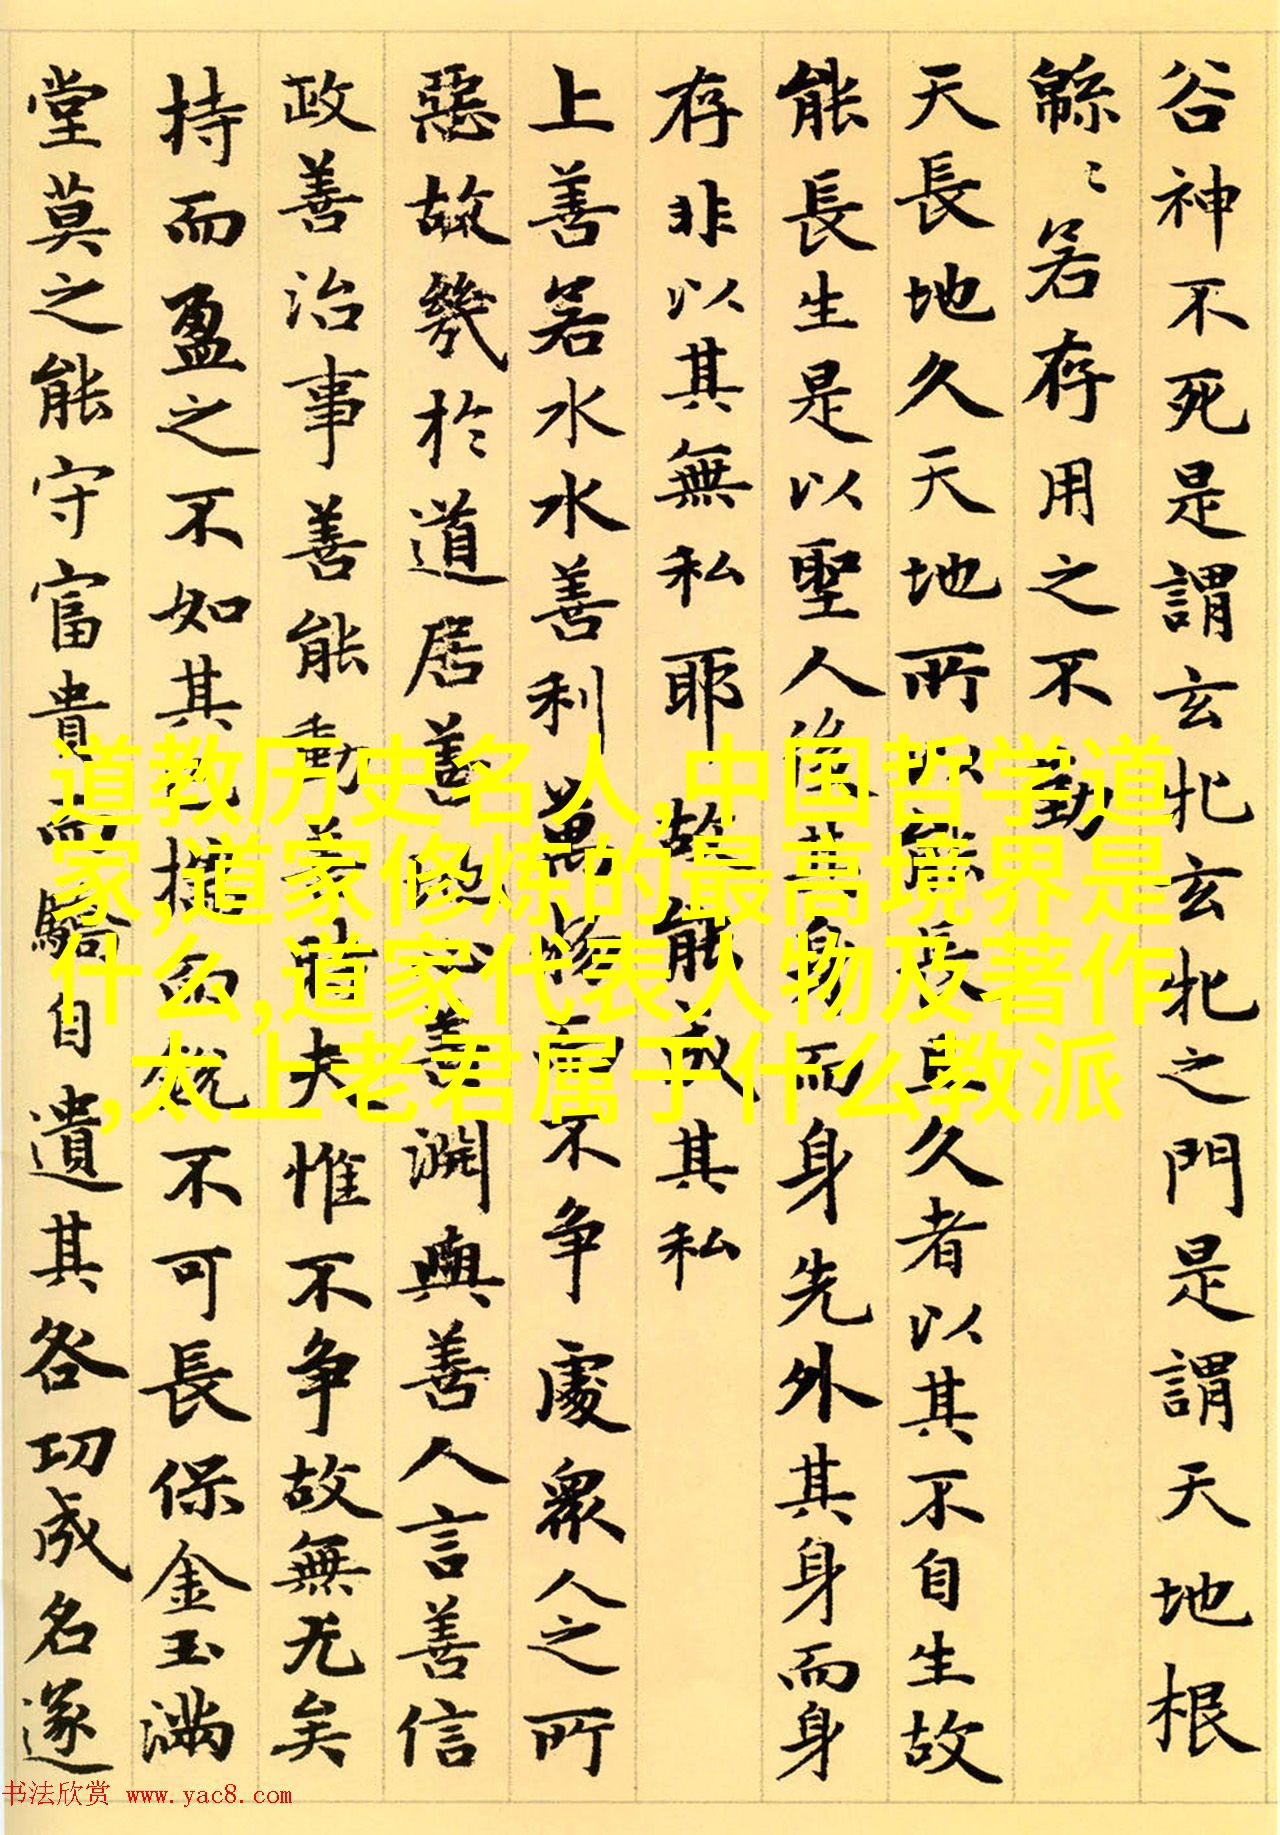 谷神不死是謂玄牝玄牝之門是謂天地根
緜〻若存用之不勤
天長地久天地所以能長且久者以其不自生故
能長生是以聖人後其身而身先外其身而身
存非以其無私耶故能成其私
上善若水水善利萬物而不争處衆人之所
惡故幾於道居善地心善淵與善人言善信
政善治事善能動善時夫惟不争故無尤矣
持而盈之不如其已揣而鋭不可長保金玉滿
堂莫之能守富貴而驕自遺其咎功成名遂
道教历史名人,中国哲学道
家,道家修炼的最高境界是
什么,道家代表人物及著作
,太上老君属于什么教派
书法欣赏 www.yac8.com